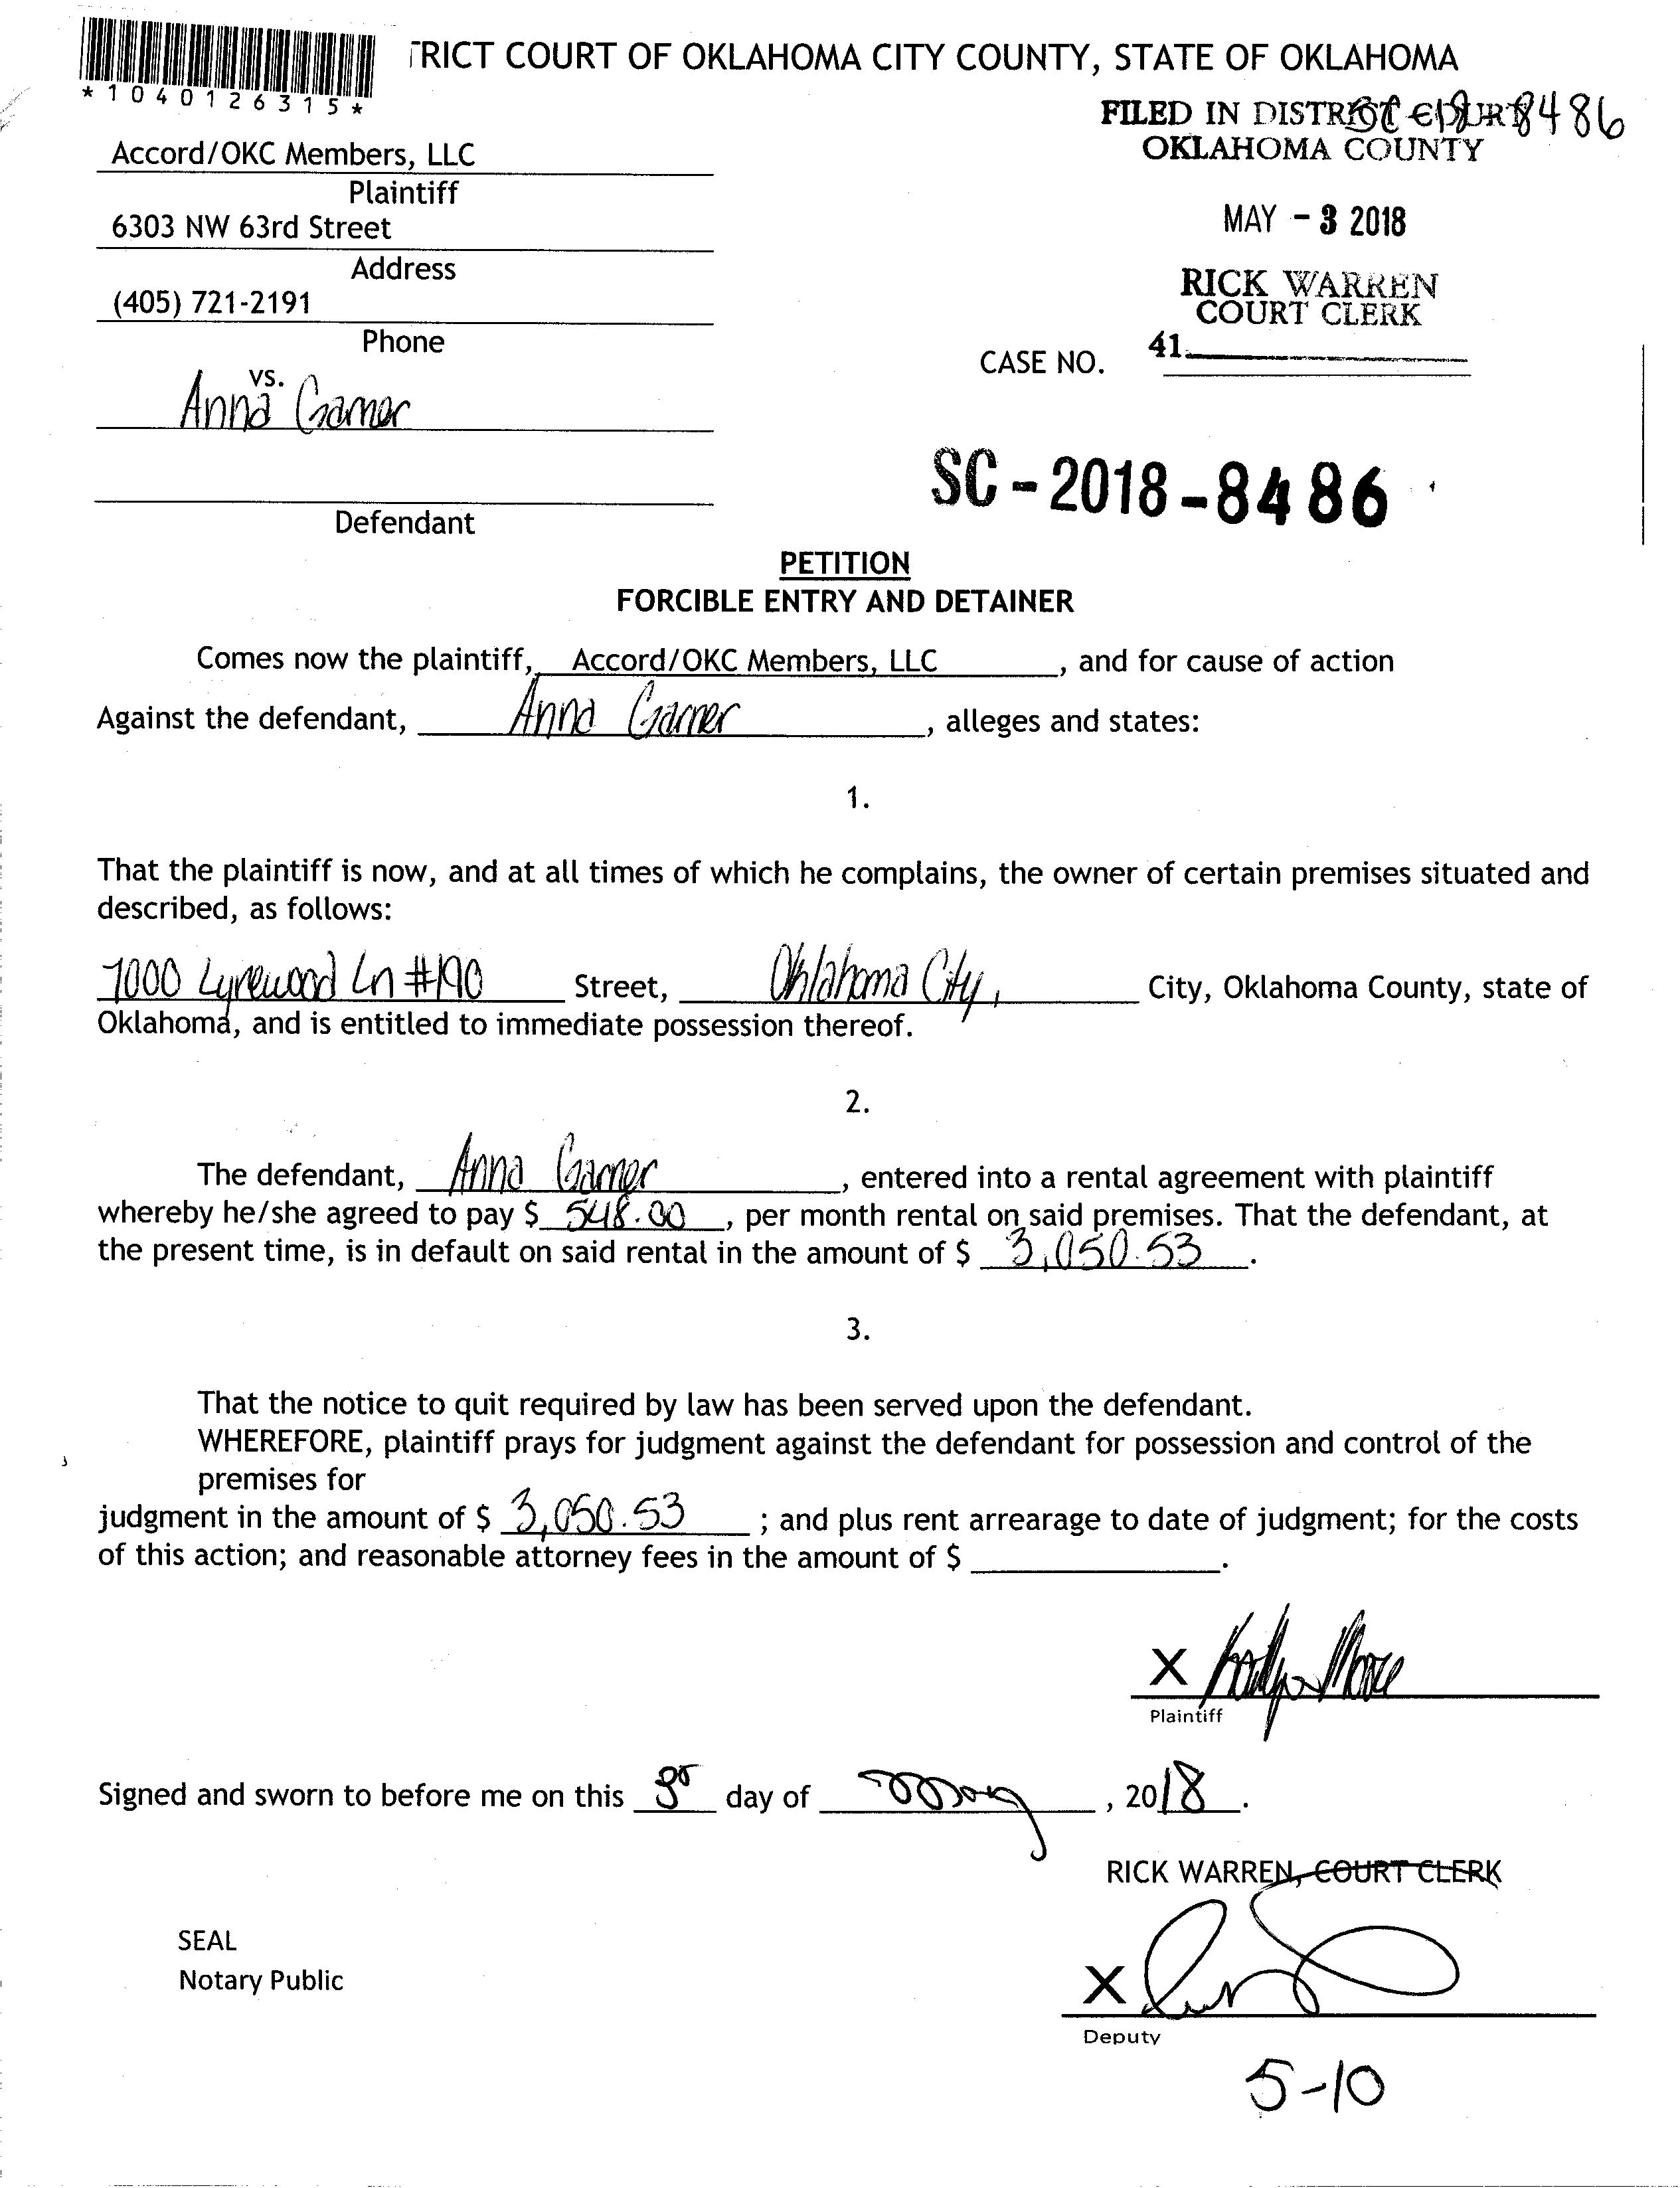 TRICT COURT OF OKLAHOMA CITY COUNTY, STATE OF OKLAHOMA
*1040126315*
FILED IN DISTRICT COURT
8486
OKLAHOMA COUNTY
Accord/OKC Members, LLC
Plaintiff
MAY - 3 2018
6303 NW 63rd Street
Address
RICK WARREN
COURT CLERK
(405) 721-2191
Phone
CASE NO. 41
vs.
Anna Garner
SC-2018-8486
Defendant
PETITION
FORCIBLE ENTRY AND DETAINER
Comes now the plaintiff, Accord/OKC Members, LLC, and for cause of action
Against the defendant, Anna Garner, alleges and states:
1.
That the plaintiff is now, and at all times of which he complains, the owner of certain premises situated and
described, as follows:
7000 Lyrewood Ln #190 Street, Oklahoma City, City, Oklahoma County, state of
Oklahoma, and is entitled to immediate possession thereof.
2.
The defendant, Anna Garner, entered into a rental agreement with plaintiff
whereby he/she agreed to pay $ 548.00, per month rental on said premises. That the defendant, at
the present time, is in default on said rental in the amount of $ 3,050.53.
3.
That the notice to quit required by law has been served upon the defendant.
WHEREFORE, plaintiff prays for judgment against the defendant for possession and control of the
premises for
judgment in the amount of $ 3,050.53; and plus rent arrearage to date of judgment; for the costs
of this action; and reasonable attorney fees in the amount of $ .
X
Plaintiff
Signed and sworn to before me on this day of May, 2018.
RICK WARREN, COURT CLERK
SEAL
Notary Public
X
Deputy
5-10